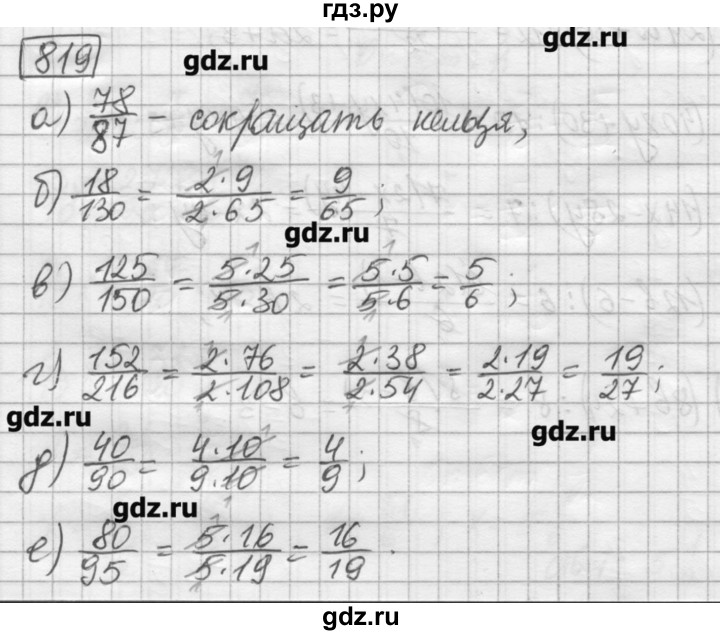 гдз.ру
819
gdz.ru
gdz.ru
а) 78/87 - сокращать нельзя,
б) 18/130 = 2·9/2·65 = 9/65;
gdz.ru
в) 125/150 = 5·25/5·30 = 5·5/5·6 = 5/6;
г) 152/216 = 2·76/2·108 = 2·38/2·54 = 2·19/2·27 = 19/27;
gdz.ru
gdz.ru
д) 40/90 = 4·10/9·10 = 4/9;
gdz.ru
е) 80/95 = 5·16/5·19 = 16/19.
gdz.ru